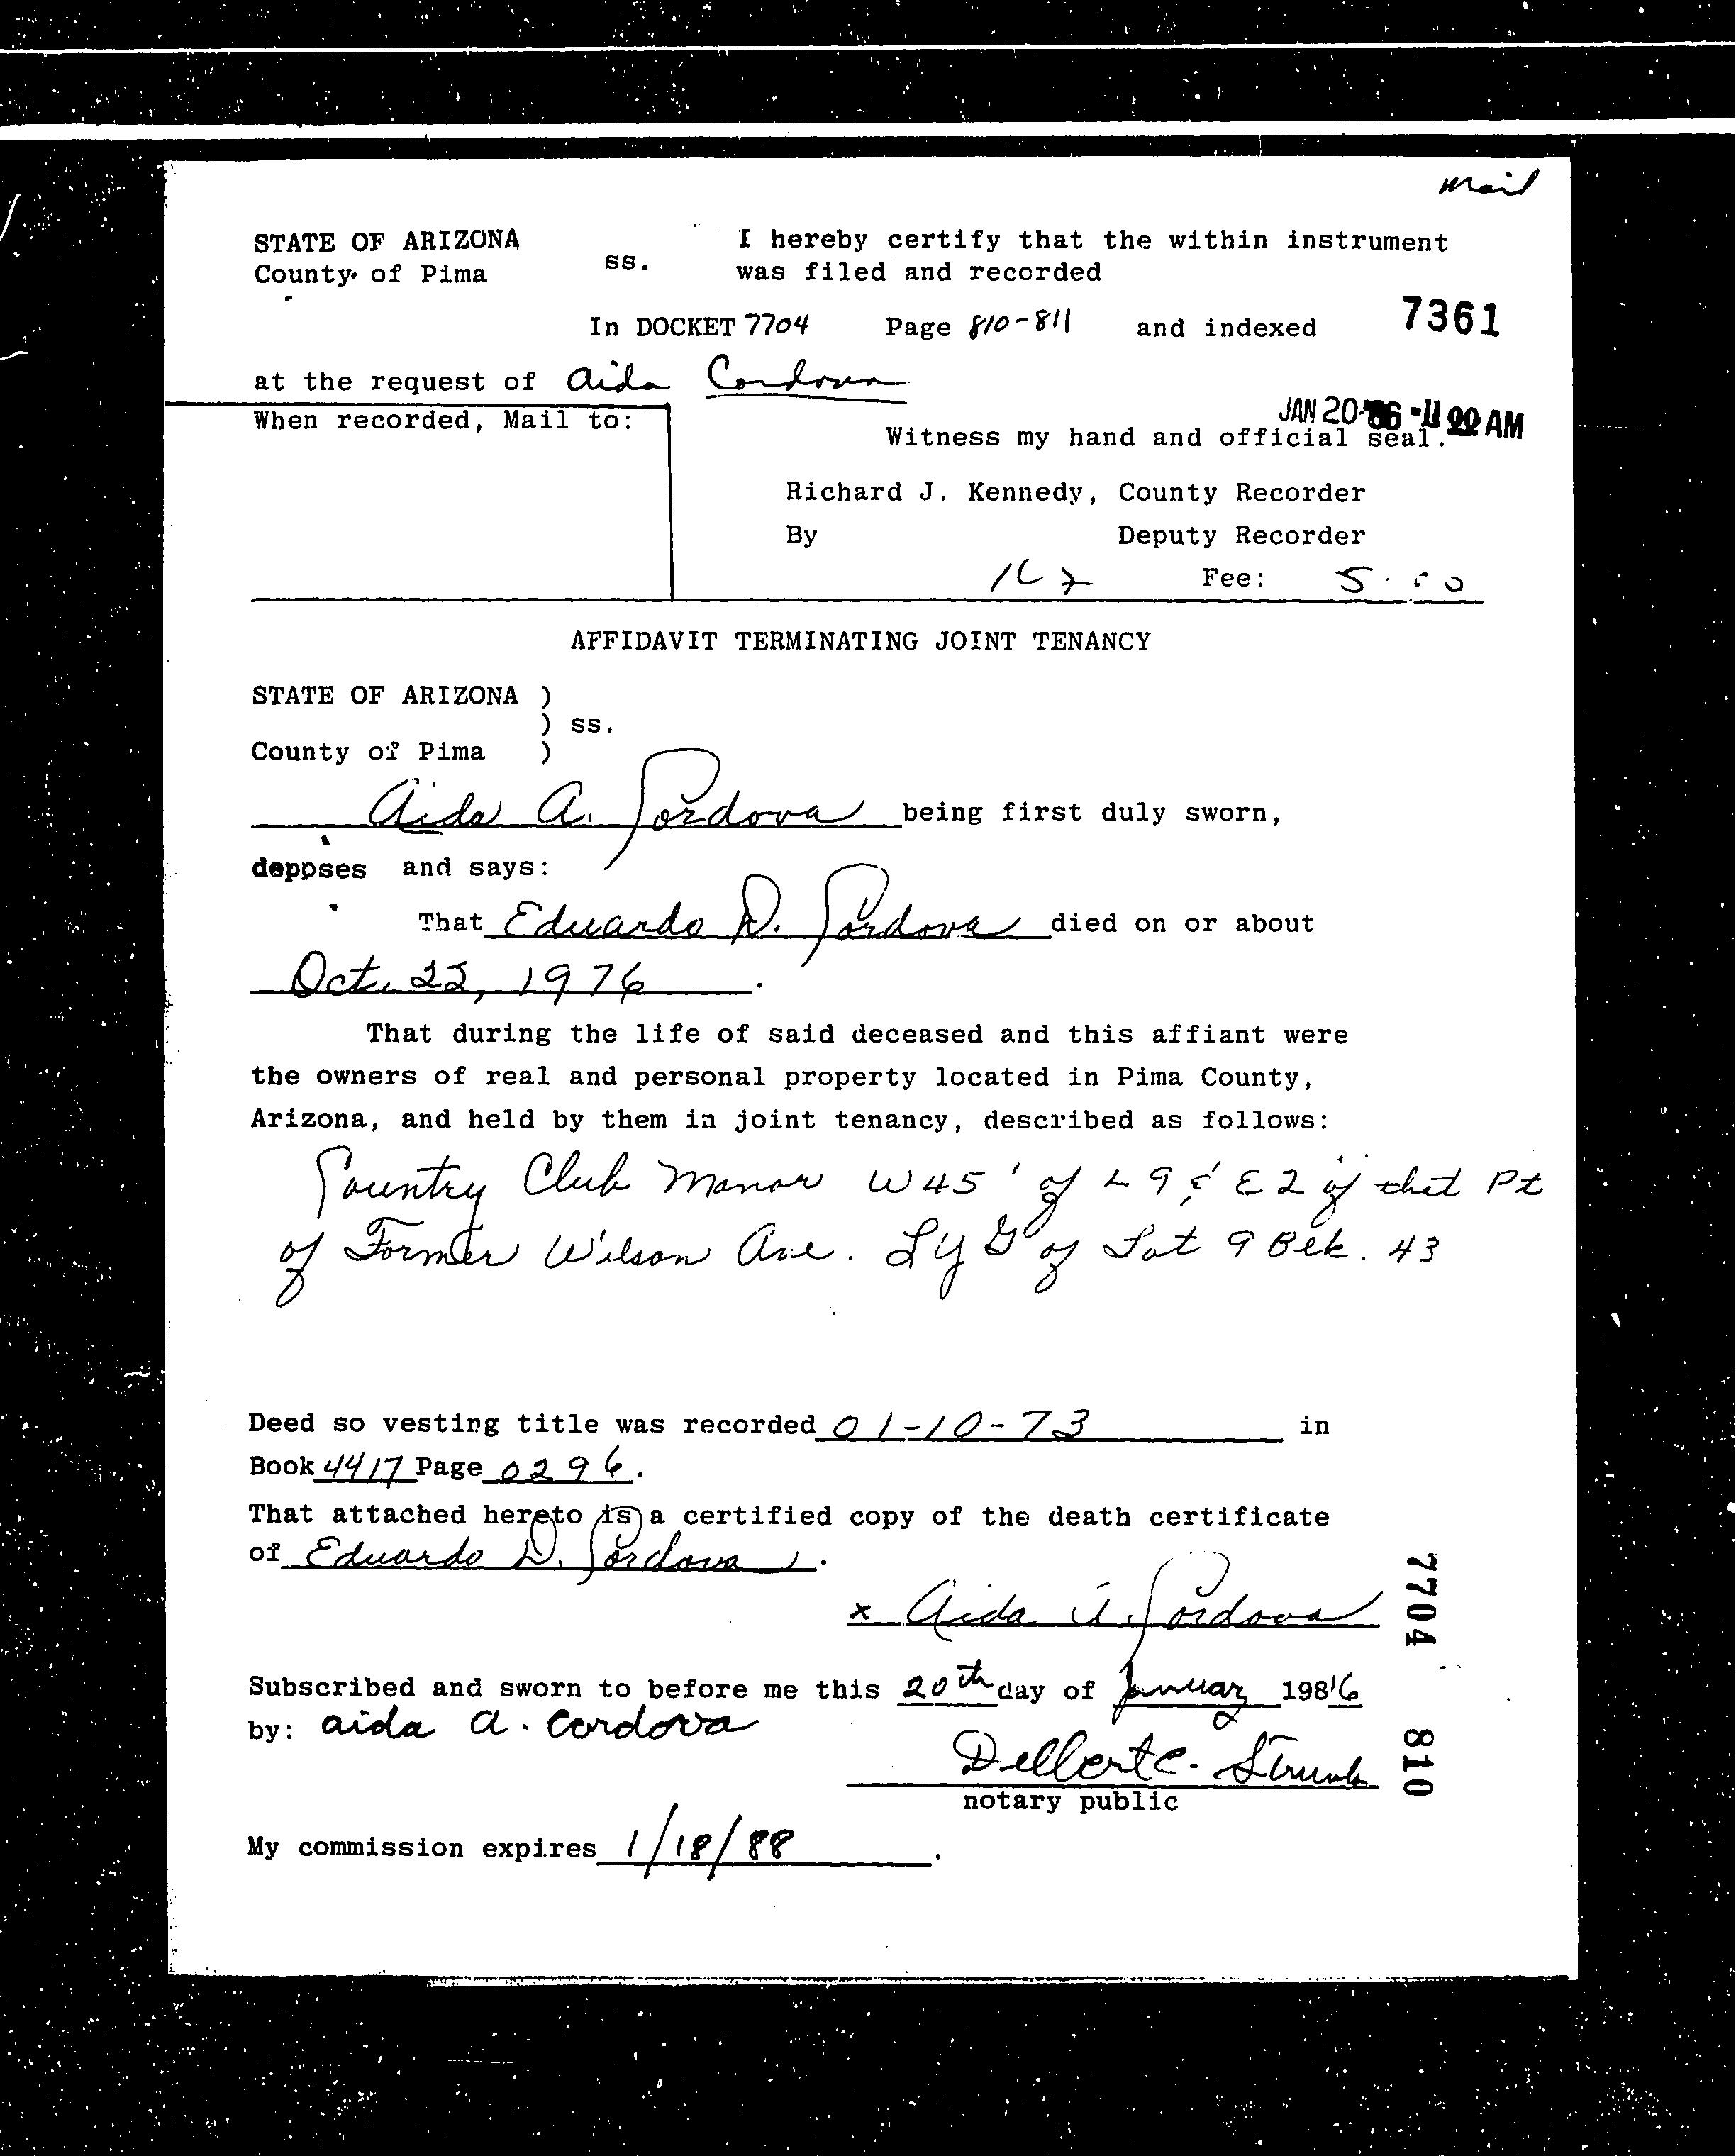 mail
STATE OF ARIZONA
County of Pima
ss.
I hereby certify that the within instrument
was filed and recorded
In DOCKET 7704 Page 810-811 and indexed 7361
at the request of Aida Cordova
When recorded, Mail to:
JAN 20 '86 - AM
Witness my hand and official seal.
Richard J. Kennedy, County Recorder
By Deputy Recorder
Fee: 5.00
AFFIDAVIT TERMINATING JOINT TENANCY
STATE OF ARIZONA )
) ss.
County of Pima )
Aida A. Cordova being first duly sworn,
deposes and says:
That Eduardo D. Cordova died on or about
Oct. 22, 1976.
That during the life of said deceased and this affiant were
the owners of real and personal property located in Pima County,
Arizona, and held by them in joint tenancy, described as follows:
Country Club Manor W 45' of L 9 & E 2 of that Pt
of Former Wilson Ave. of Lot 9 Blk. 43
Deed so vesting title was recorded 01-10-73 in
Book 4417 Page 0296.
That attached hereto is a certified copy of the death certificate
of Eduardo D. Cordova.
x Aida A. Cordova
Subscribed and sworn to before me this 20th day of January 1986
by: aida a. cordova
Dellert C.
notary public
My commission expires 1/18/88.
7704 810